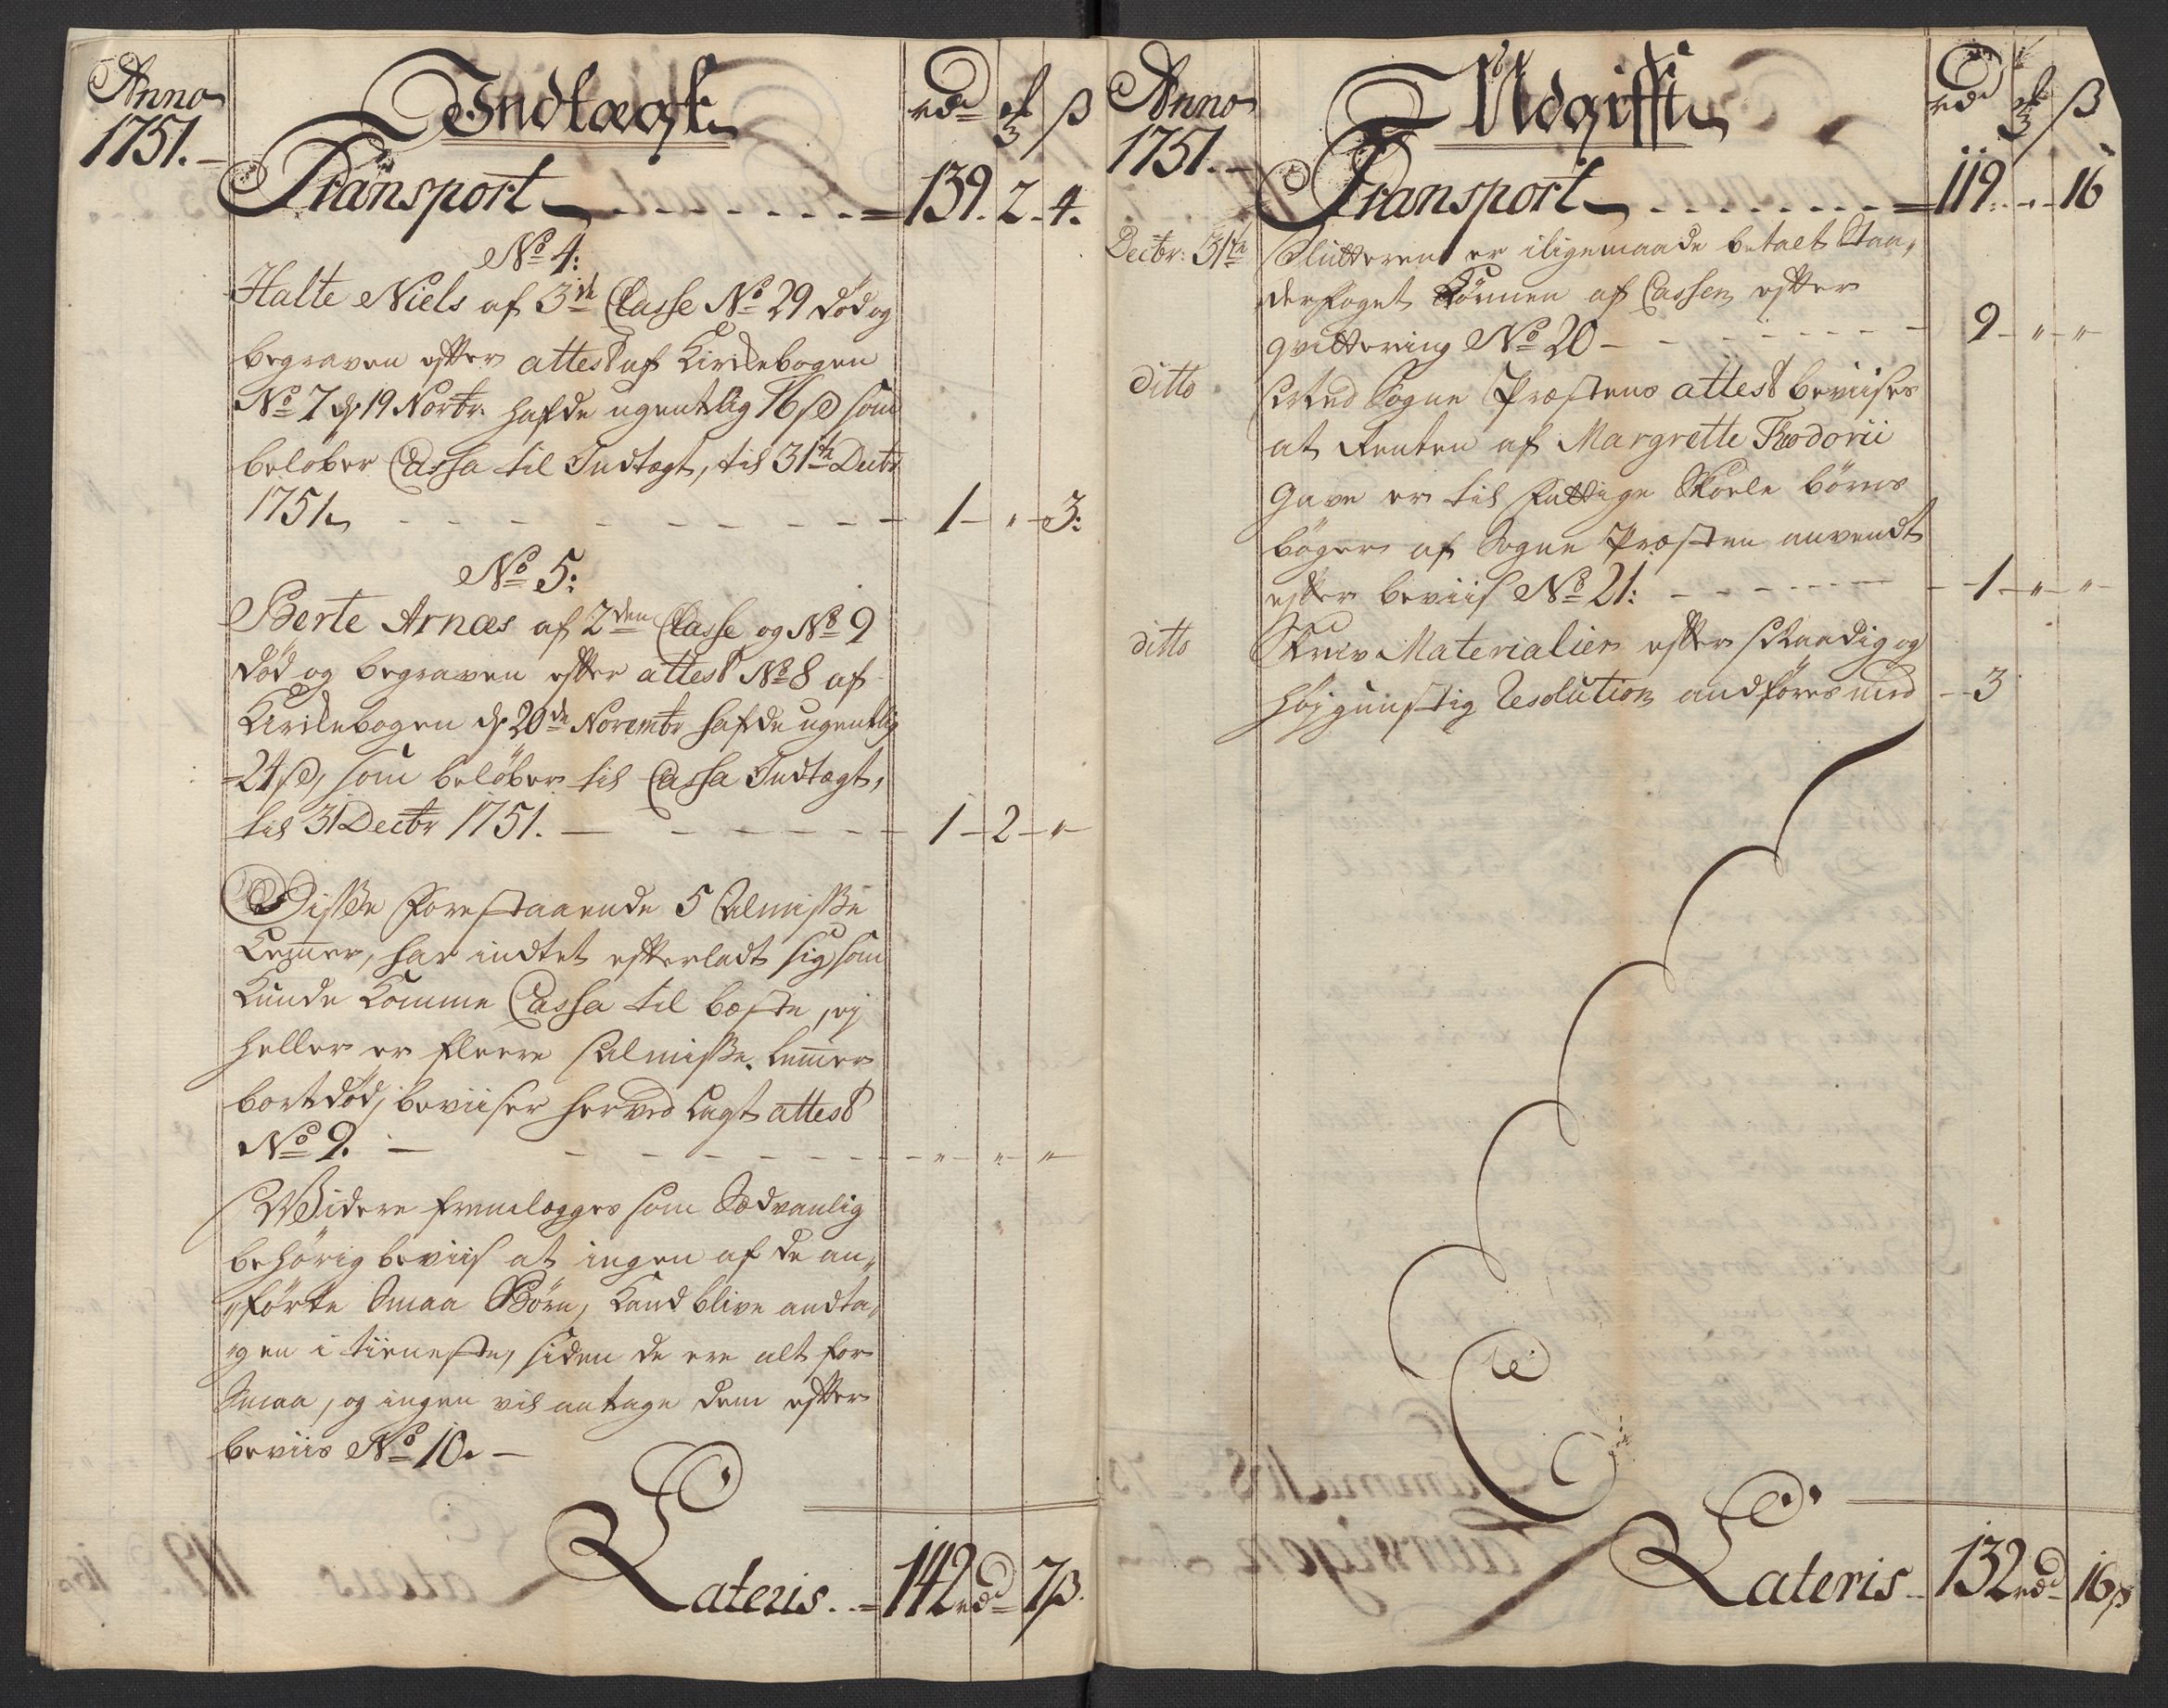 Anno
1751.
Indtægt
rdr mk ß
Transport 139. 2. 4.
No 4:
Halte Niels af 3die Classe No 29 död og
begraven efter attest af Kirkebogen
No 7 d. 19 Novbr. hafde ugentlig 16 ß som
belöber Cassa til Indtægt, til 31te Decbr
1751 1 " 3:
No 5:
Berte Arnæs af 2den Classe og No 9
död og begraven efter attest No 8 af
Kirkebogen d. 20de Novembr hafde ugentlig
24 ß, som belöber til Cassa Indtægt,
til 31 Decbr 1751. 1 2 "
Disse forestaaende 5 Almisse
Lemmer, har indtet efterladt sig som
kunde komme Cassa til beste, ej
heller er fleere Almisse Lemmer
bortdöd, beviiser herved lagt attest
No 9. " " "
Widere fremlegges som Sædvanlig
behörig beviis at ingen af de an„
„förte Smaa Börn, kand blive andta„
„gen i tieneste, siden de ere alt for
Smaa, og ingen vil antage dem efter
beviis No 10.
Lateris 142 rdr 7 ß.
Anno
1751.
Udgifft
rdr mk ß
Transport 119 16
Decbr: 31te er iligemaade betalt Staa„
derfoget af Cassen efter
qvittering No 20 9 " "
ditto Med Sogne Præstens attest beviises
at Renten af Margrette Theodorii
Gave er til fattige Skoele börns
böger af Sogne Præsten anvendt
efter beviis No 21: 1 " "
ditto Skriv Materialier efter og
höjgunstig Resolution andföres med 3
Lateris 132 rdr 16 ß